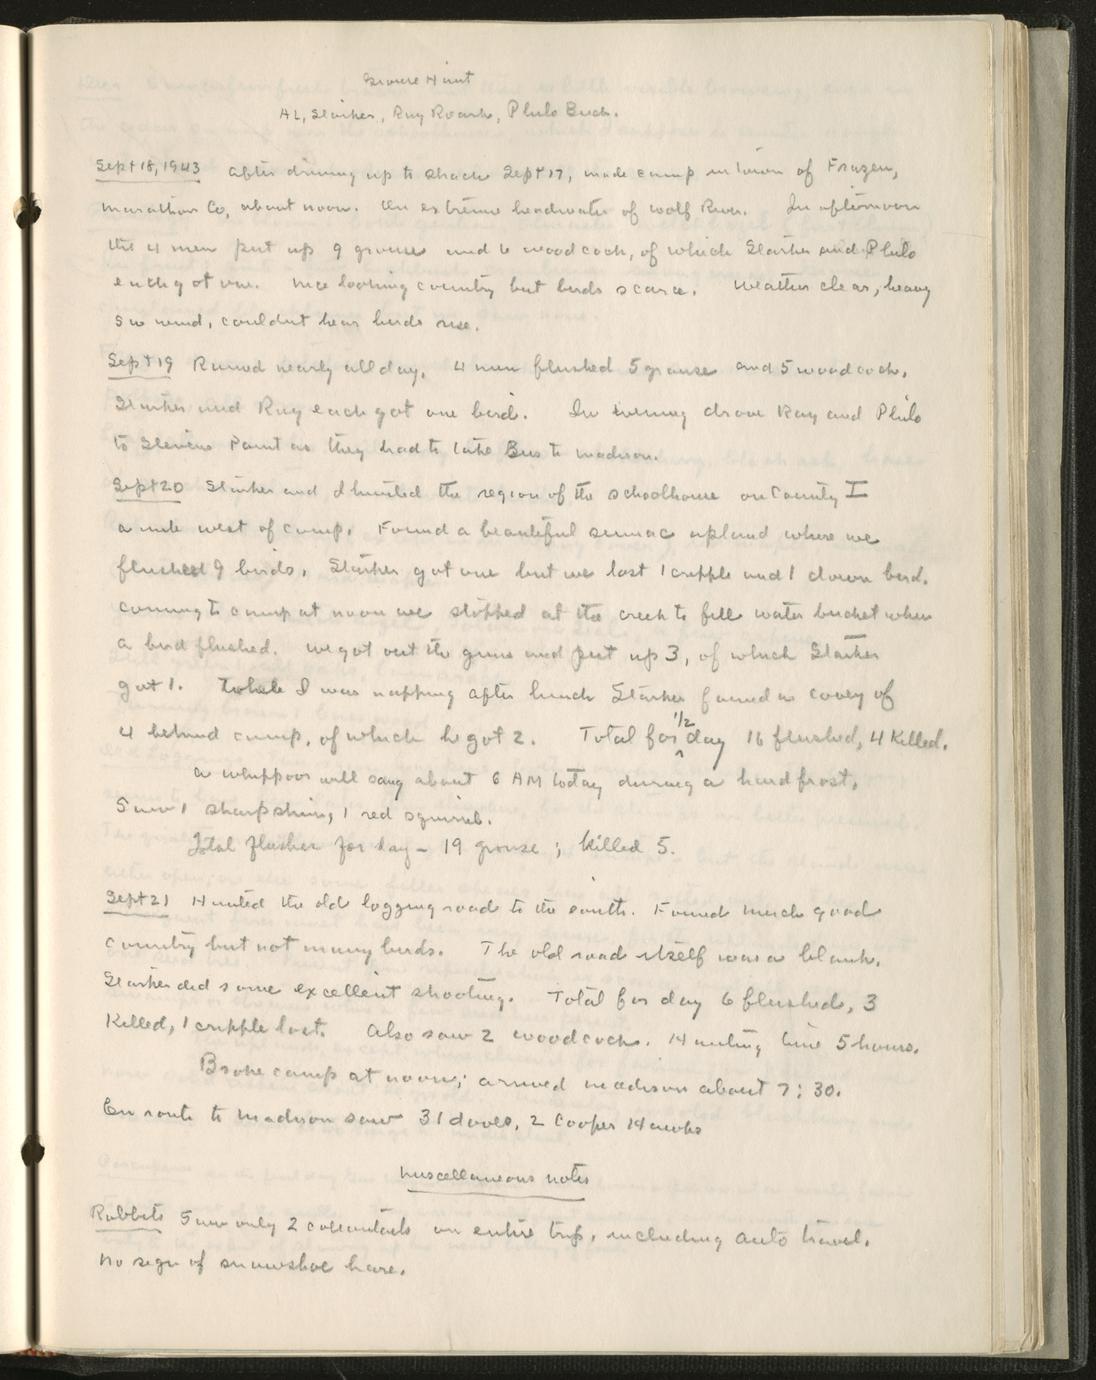 Grouse Hunt
AL, Starker, Ray Roark, Philo Buck.
Sept 18, 1943 After driving up to shack Sept 17, made camp in town of Frazen,
Marathon Co, about noon. On extreme headwater of Wolf River. In afternoon
the 4 men put up 9 grouse and 6 woodcock, of which Starker and Philo
each got one. Nice looking country but birds scarce. Weather clear, heavy
SW wind, couldnt hear birds rise.
Sept 19 Rained nearly all day. 4 men flushed 5 grouse and 5 woodcock.
Starker and Ray each got one bird. In evening drove Ray and Philo
to Stevens Point as they had to take Bus to Madison.
Sept 20 Starker and I hunted the region of the schoolhouse on County I
a mile west of camp. Found a beautiful sumac upland where we
flushed 9 birds. Starker got one but we lost 1 cripple and 1 down bird.
Coming to camp at noon we stopped at the creek to fill water bucket when
a bird flushed. We got out the guns and put up 3, of which Starker
got 1. While I was napping after lunch Starker found a covey of
4 behind camp, of which he got 2. Total for 1/2 day 16 flushed, 4 killed.
A whippoorwill sang about 6 AM today during a hard frost.
Saw 1 sharpshin, 1 red squirrel.
Total flushes for day - 19 grouse; killed 5.
Sept 21 Hunted the old logging road to the south. Found much good
country but not many birds. The old road itself was a blank.
Starker did some excellent shooting. Total for day 6 flushed, 3
killed, 1 cripple lost. Also saw 2 woodcock. Hunting time 5 hours.
Broke camp at noon; arrived Madison about 7:30.
En route to Madison saw 31 doves, 2 Cooper Hawks
Miscellaneous notes
Rabbits Saw only 2 cottontails on entire trip, including auto travel.
No sign of snowshoe hare.